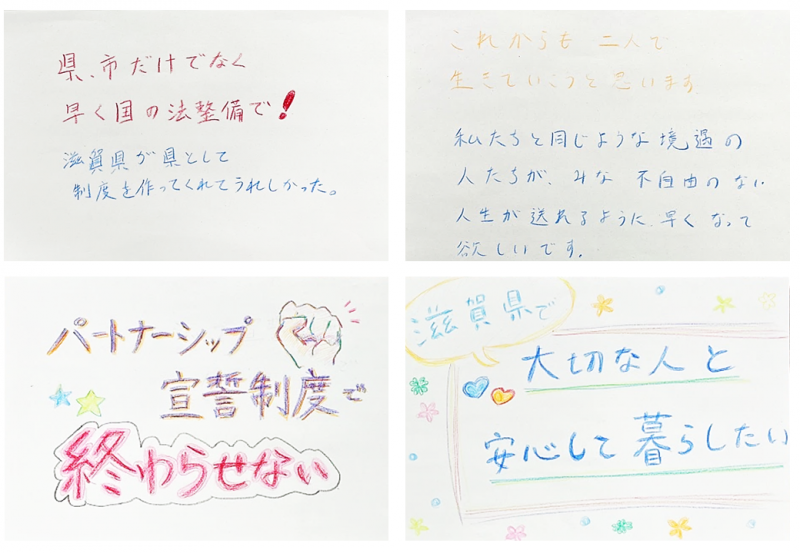 県、市だけでなく
早く国の法整備で!
滋賀県が県として
制度を作ってくれてうれしかった。
これからも 二人で
生きていこうと思います。
私たちと同じような境遇の
人たちが、みな 不自由のない
人生が送れるように、早くなって
欲しいです。
パートナーシップ
宣誓制度で
終わらせない
滋賀県で
大切な人と
安心して暮らしたい